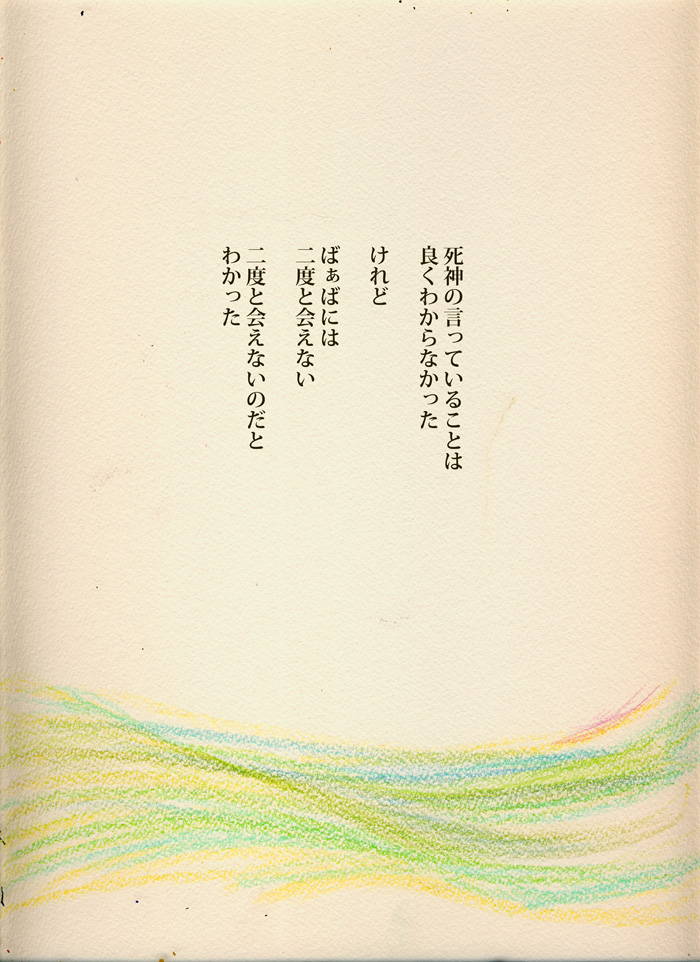 死神の言っていることは
良くわからなかった
けれど
ばぁばには
二度と会えない
二度と会えないのだと
わかった